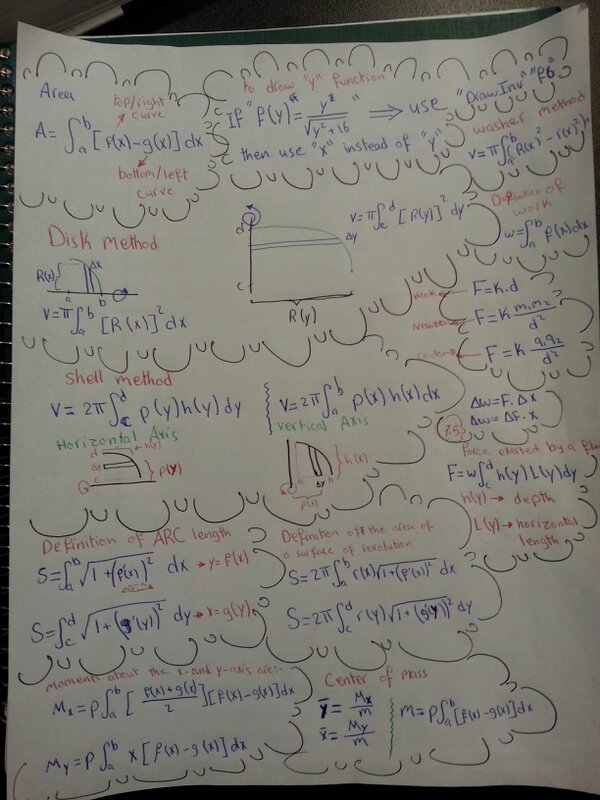 Area
top/right
curve
A = ∫_a^b [f(x) - g(x)] dx
bottom/left
curve
To draw "y" function
If "f(y) = y²/√(y²+16)" ⟹ use "Draw Inv"
then use "x" instead of "y"
washer method
V = π∫_a^b (R(x)² - r(x)²)
Disk method
R(x)
Δx
a b
V = π∫_a^b [R(x)]² dx
d
c
Δy
R(y)
V = π∫_c^d [R(y)]² dy
Definition of
work
w = ∫_a^b f(x) dx
Hook F = K.d
Newton F = K m₁m₂/d²
Coulomb F = K q₁q₂/d²
Shell method
V = 2π∫_c^d p(y) h(y) dy
Horizontal Axis
d
h(y)
Δy
p(y)
V = 2π∫_a^b p(x) h(x) dx
vertical Axis
h(x)
a b
p(x)
Δw = F.Δx
Δw = ΔF.x
7.5
Force exerted by a
F = w∫_c^d h(y) L(y) dy
h(y) → depth
L(y) → horizontal
length
Definition of ARC length
S = ∫_a^b √(1+(f'(x))²) dx → y = f(x)
S = ∫_c^d √(1+(g'(y))²) dy → x = g(y)
Definition off the area of
a surface of revolution
S = 2π∫_a^b r(x)√(1+(f'(x))²) dx
S = 2π∫_c^d r(y)√(1+(g'(y))²) dy
moments about the x-and y-axis are:-
Mx = ρ∫_a^b [(f(x)+g(x))/2][f(x)-g(x)] dx
My = ρ∫_a^b x[f(x)-g(x)] dx
Center of mass
ȳ = Mx/m
x̄ = My/m
m = ρ∫_a^b [f(x)-g(x)] dx